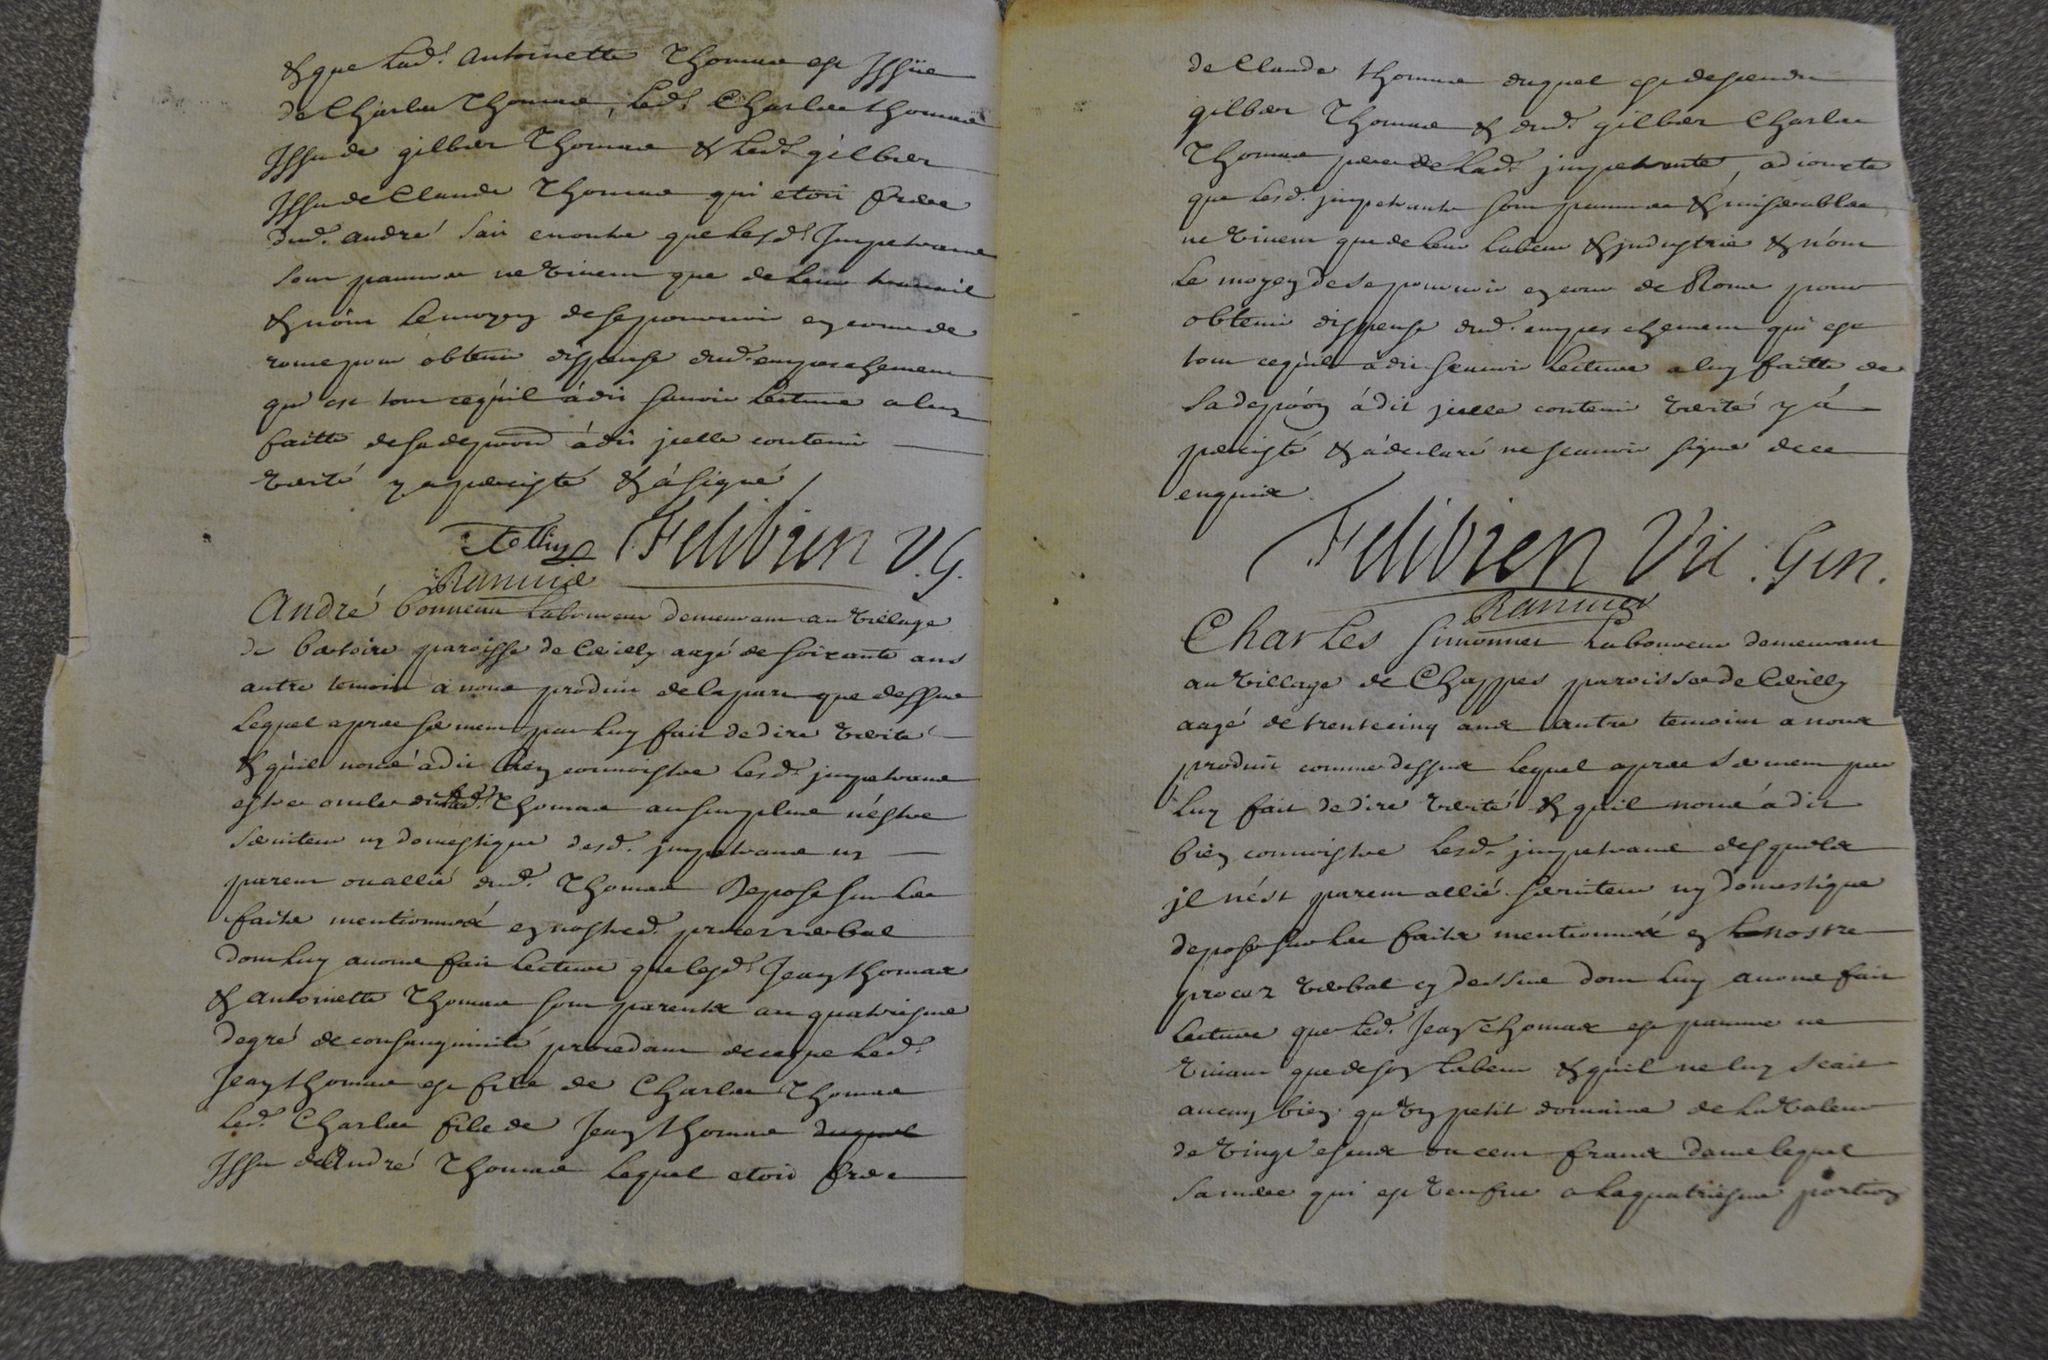 & que lad. Antoinette Thomas est Issüe
de Charles Thomas, led. Charles thomas
Issu de gilber Thomas & led. gilber
Issu de Claude Thomas qui etoit frere
dud. André sait en outre que lesd. Impetrans
sont pauvres ne vivent que de leur travail
& n'ont le moyen de se pourvoir en cour de
rome pour obtenir dispense dud. empeschement
qui est tout ce qu'il à dit savoir lecture a luy
faitte de sa depoon à dit jcelle contenir
verité y a persisté & à signé
Felibien V.G.
André bonneau laboureur demeurant au village
de paroisse de aagé de soixante ans
autre temoin à nous produit de la part que dessus
lequel apres serment par luy fait de dire verité
& qu'il nous à dit bien connoistre lesd. jmpetrans
estre oncle dud. Thomas au surplus n'estre
serviteur ny domestique desd. jmpetrans ny
parent ou allié dud. Thomas Depose sur les
faits mentionnés en nostred. proces verbal
dont luy avons fait lecture que lesd. Jean thomas
& Antoinette Thomas sont parents au quatriesme
degré de consanguinité procedant de ce que led.
Jean thomas est fils de Charles Thomas
led. Charles fils de Jean thomas duquel
Issu de André Thomas lequel etoit frere
de Claude thomas duquel est descendu
gilber Thomas & dud. gilber Charles
Thomas pere de lad. jmpetrante, adjoute
que lesd. jmpetrants sont pauvres & miserables
ne vivent que de leur labeur & jndustrie & n'ont
le moyen de se pourvoir en cour de Rome pour
obtenir dispense dud. empeschement qui est
tout ce qu'il à dit scavoir lecture a luy faitte de
sa depoon à dit jcelle contenir verité y à
persisté & à declaré ne scavoir signé de ce
enquis.
Felibien Vic. Gen.
Charles Simonnet laboureur demeurant
au village de Chappes paroisse de
aagé de trente cinq ans autre temoin a nous
produit comme dessus lequel apres serment par
luy fait de dire verité & qu'il nous à dit
bien connoistre lesd. jmpetrans desquels
jl n'est parent allié serviteur ny domestique
depose sur les faits mentionnés en nostre
proces verbal cy dessus dont luy avons fait
lecture que led. Jean Thomas est pauvre ne
vivant que de son labeur & qu'il ne luy scait
aucun bien qu'un petit domaine de la valeur
de vingt escus ou cent francs dans lequel
sa mere qui est veufve a la quatriesme portion